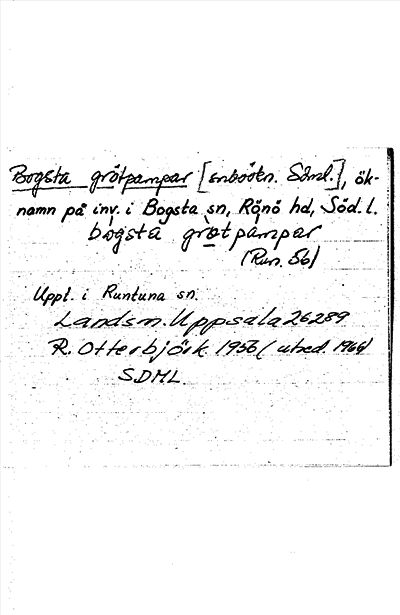 Bogsta grötpampar [snböökn. Söml.], ök-
namn på inv. i Bogsta sn, Rönö hd, Söd. l.
bogsta grötpampar
(Run. 56)
Uppt. i Runtuna sn.
Landsm. Uppsala 26289
R. Otterbjörk 1956 (utred. 1966)
SDML